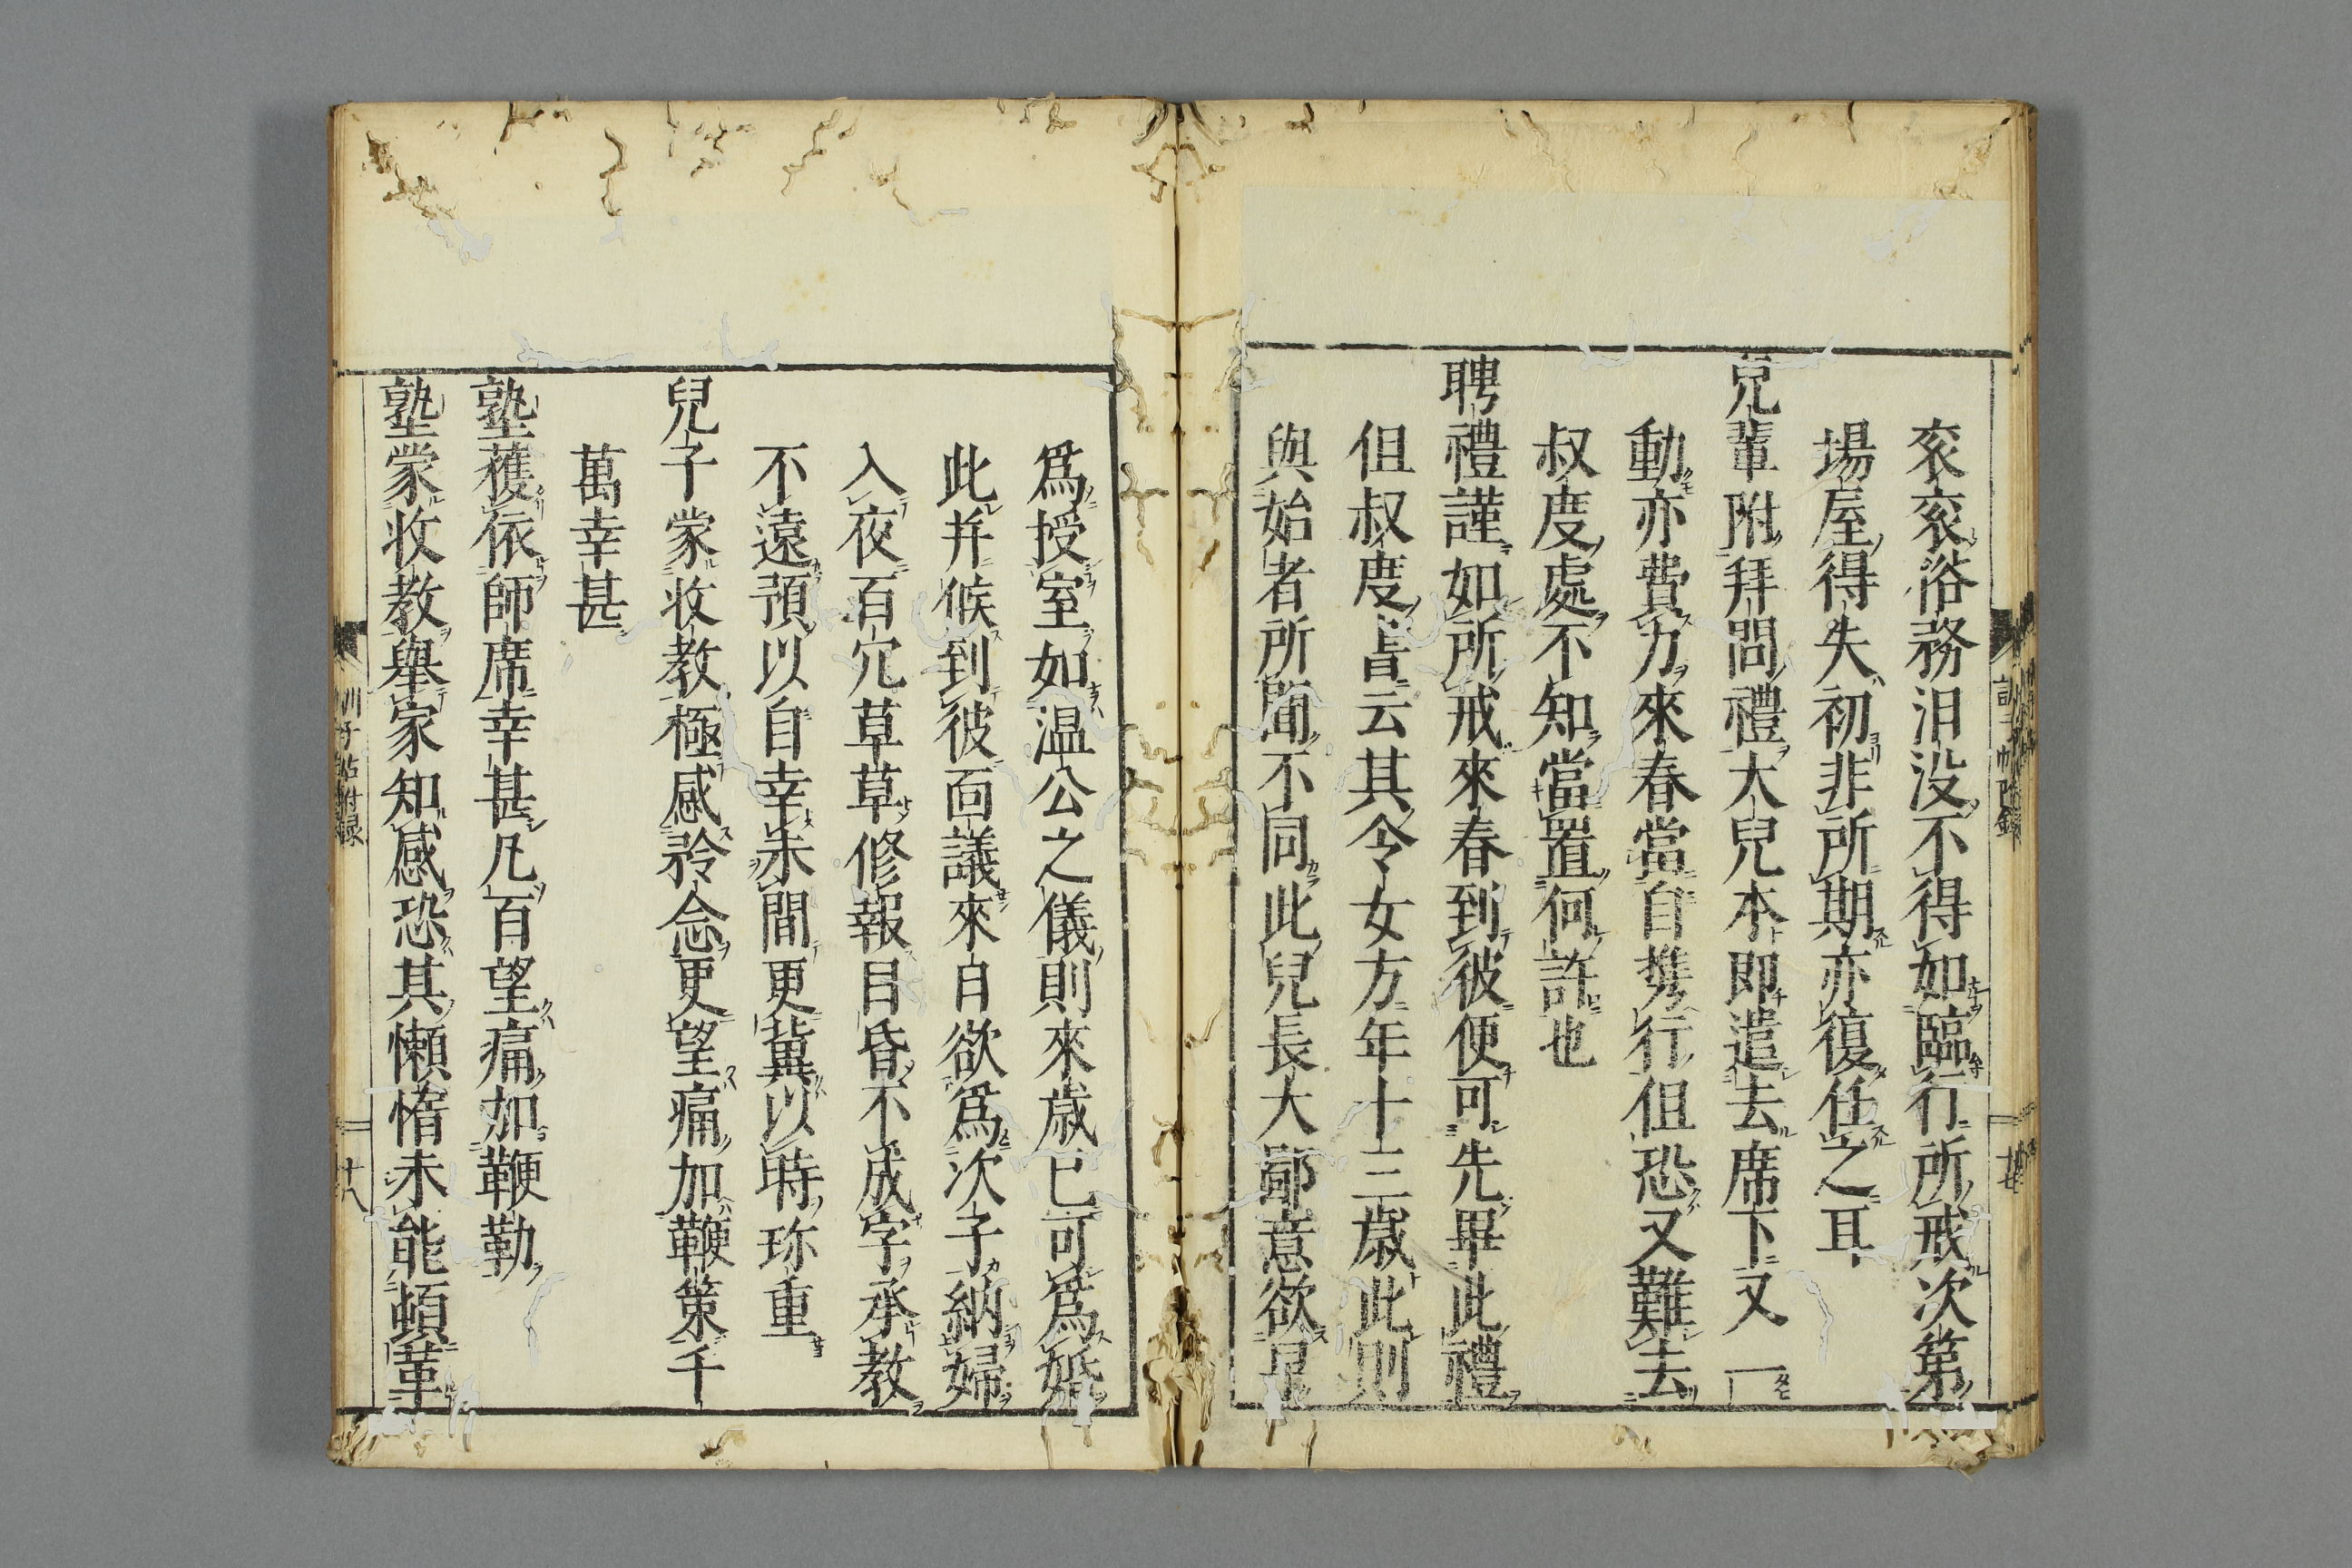 衮衮俗務汨没不得如臨行所戒次第
場屋得失初非所期亦復任之耳
兒輩附拜問禮大兒本即遣去席下又一
動亦費力來春當自携行但恐又難去
叔度處不知當置何許也
聘禮謹如所戒來春到彼便可先畢此禮
但叔度皆云其令女方年十三歳此則
與始者所聞不同此兒長大鄙意欲早
爲授室如温公之儀則來歳已可爲婚
此幷候到彼面議來自欲爲次子納婦
入夜百冗草草修報目昏不成字承教
不遠預以自幸未間更冀以時珎重
兒子蒙收教極感矜念更望痛加鞭策千
萬幸甚
塾蒦依師席幸甚凡百望痛加鞭勒
塾蒙收教舉家知感恐其懶惰未能頓革
訓子帖附録
十八